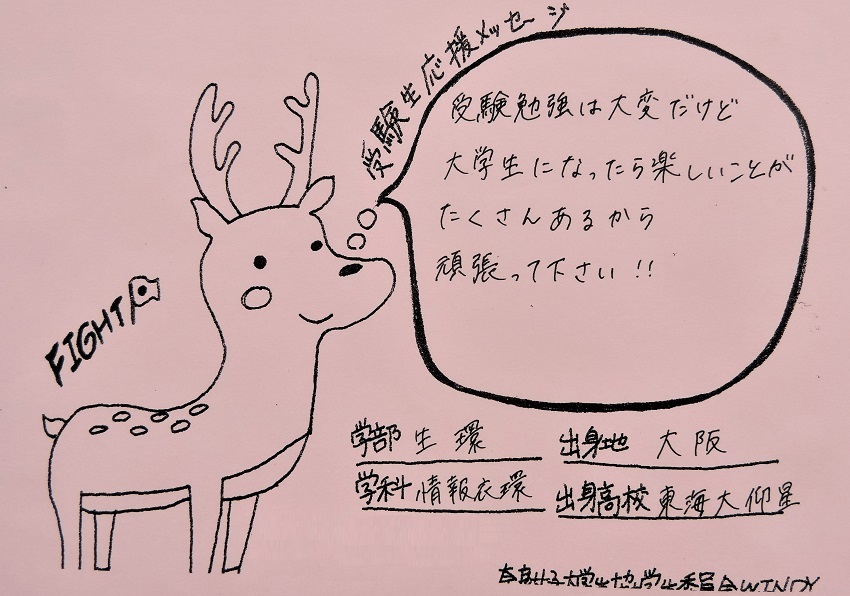 受験生応援メッセージ
受験勉強は大変だけど
大学生になったら楽しいことが
たくさんあるから
頑張って下さい!!
FIGHT
学部 生環
出身地 大阪
学科 情報衣環
出身高校 東海大仰星
奈良女子大学生協学生委員会WINDY